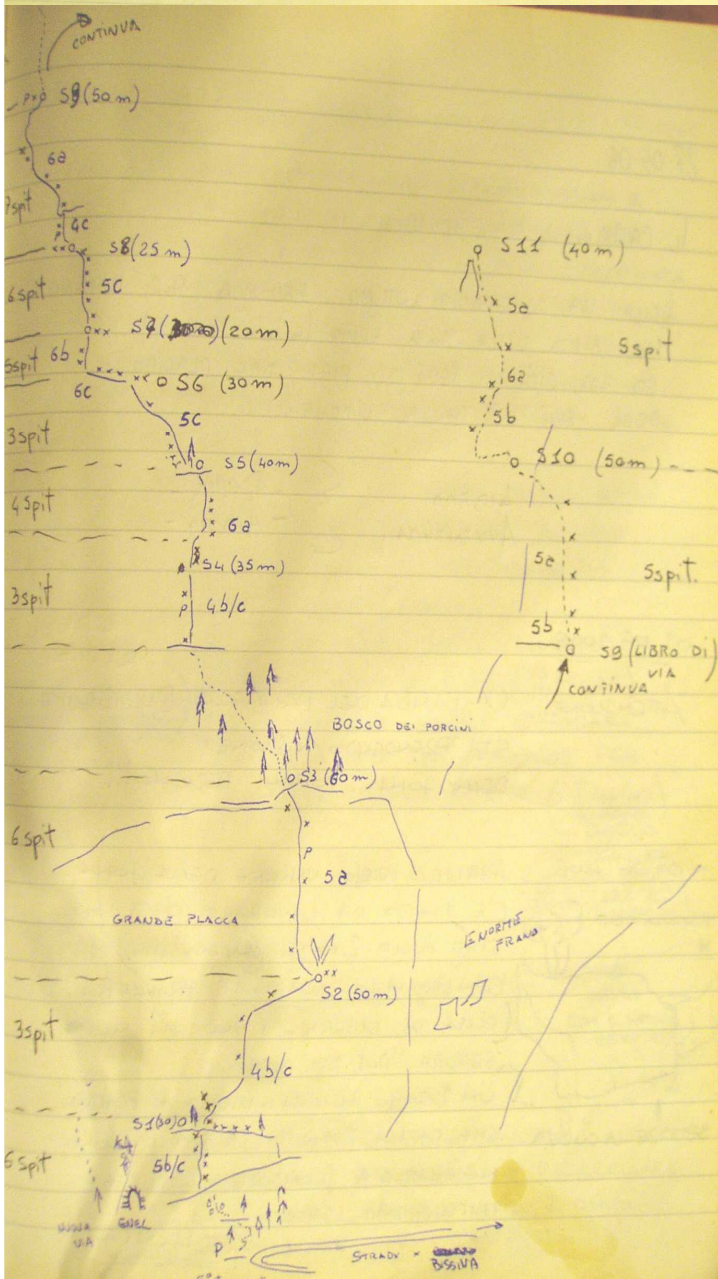 CONTINUA
S9 (50m)
6a
7spit
4c
S8 (25m)
6spit
5c
S7 (20m)
5spit
6b
6c
S6 (30m)
5c
3spit
S5 (40m)
4spit
6a
S4 (35m)
3spit
P
4b/c
BOSCO DEI PORCINI
S3 (60m)
6spit
P
5a
GRANDE PLACCA
ENORME
FRANA
S2 (50m)
3spit
4b/c
S1(30)
6spit
5b/c
NUOVA
VIA
ENEL
P
STRADA x
BISSINA
S11 (40m)
5a
5spit
6a
5b
S10 (50m)
5a
5spit.
5b
S9 (LIBRO DI
VIA
CONTINUA